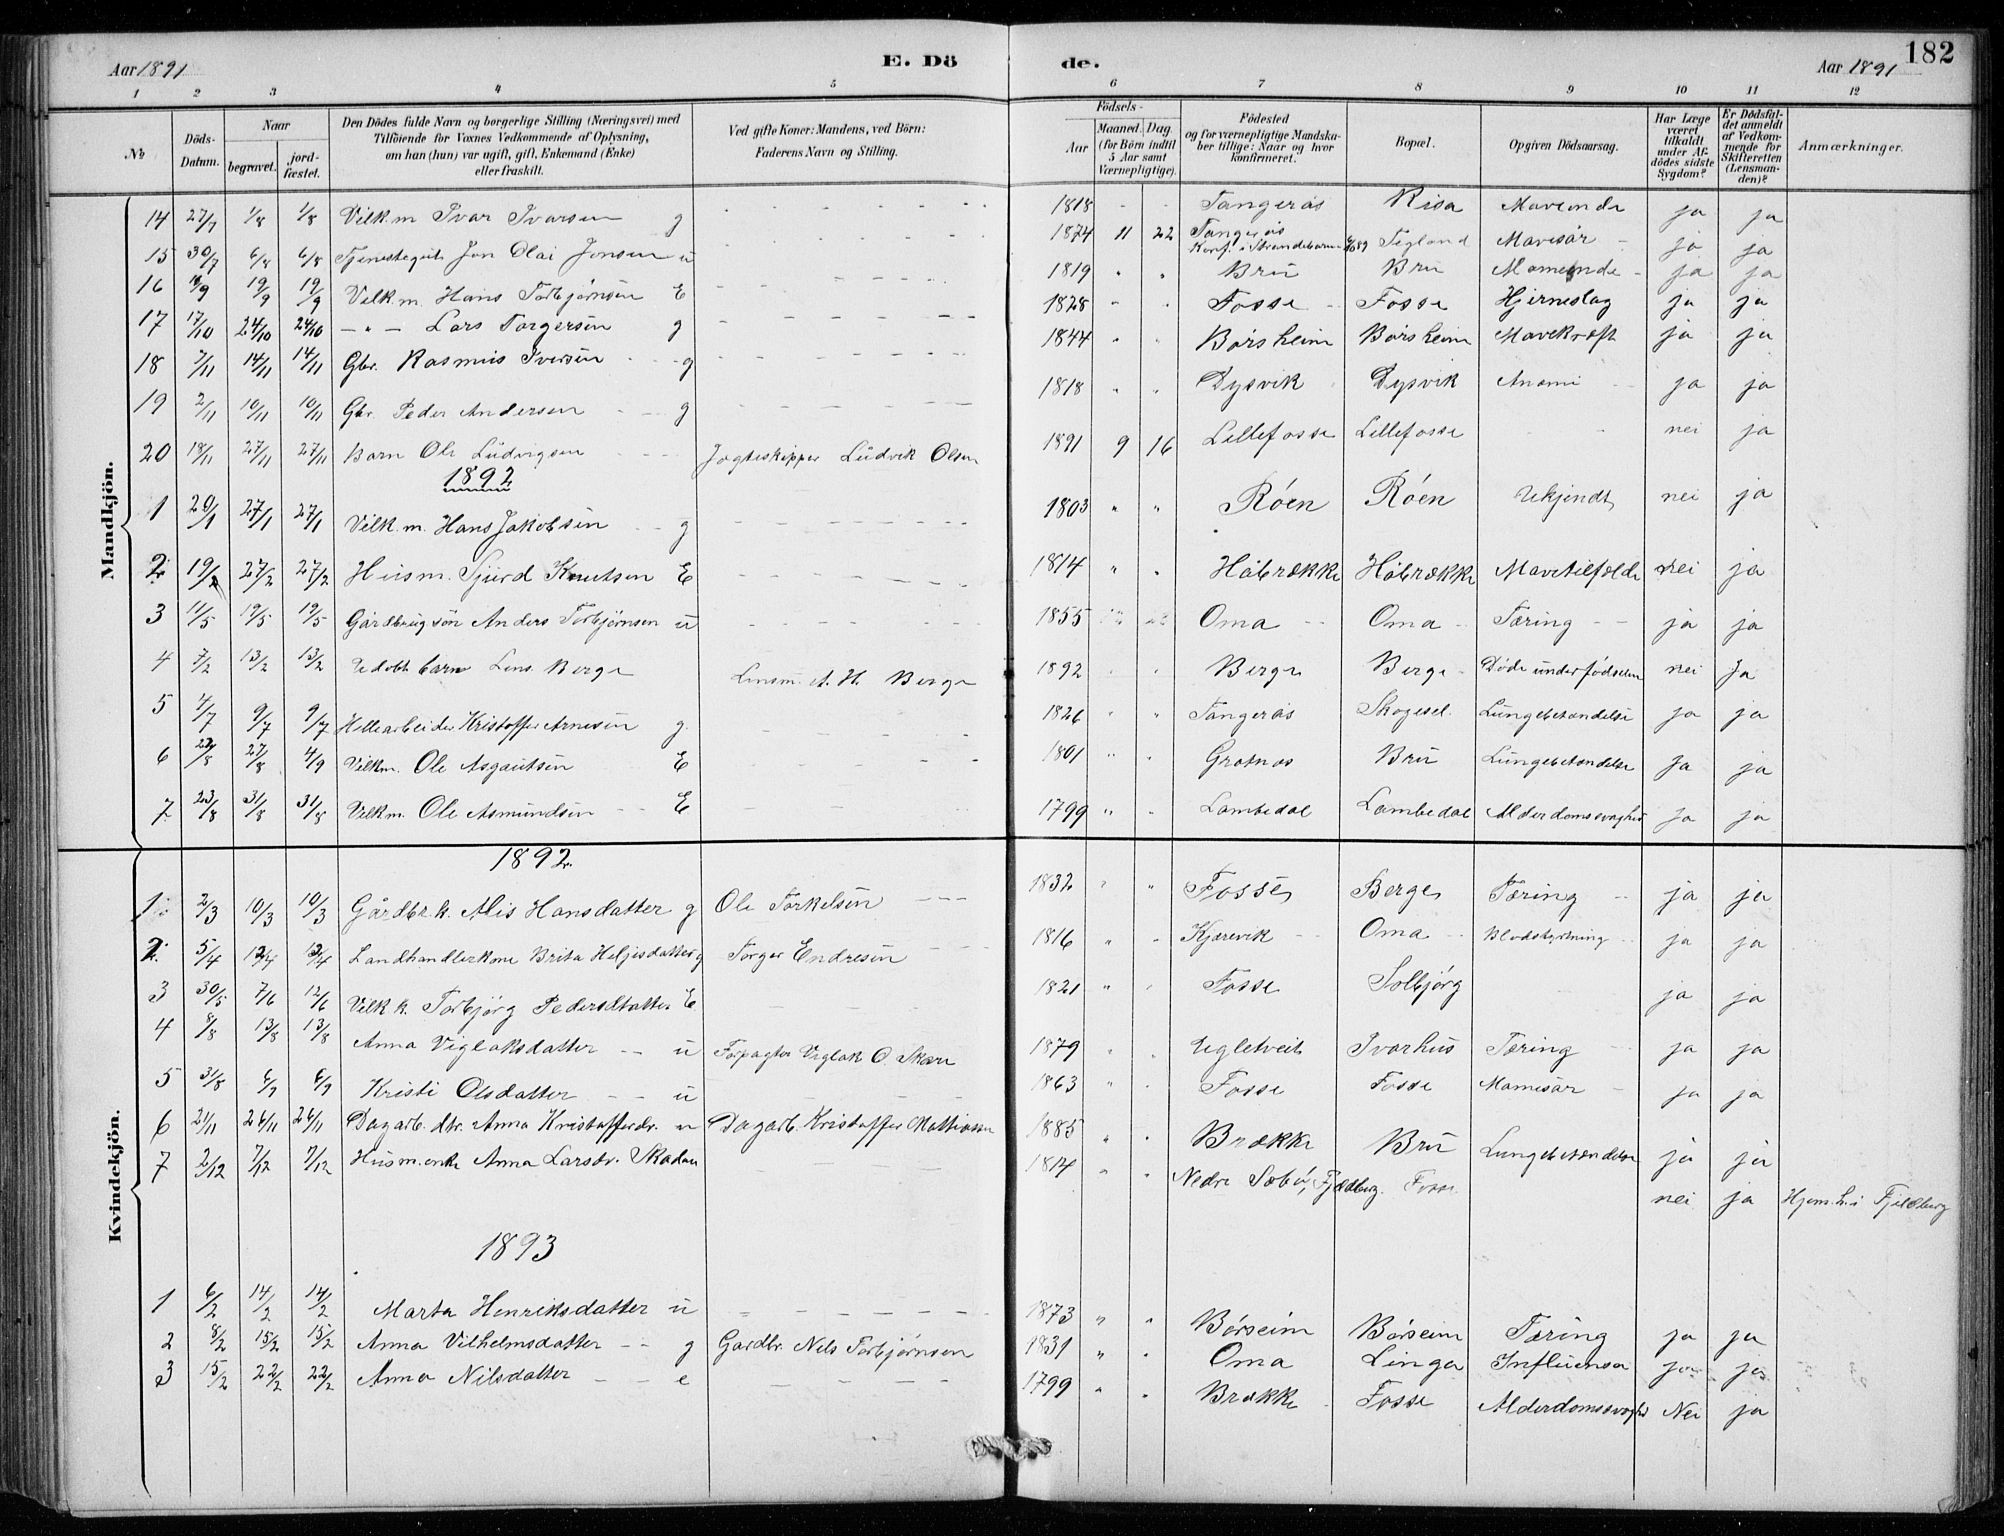 Aar 1891
E. Dö
de.
Aar 1891
182
1 2 3 4 5 6 7 8 9 10 11 12
No
Döds-Datum.
Naar
begravet.
jord-fæstet.
Den Dödes fulde Navn og borgerlige Stilling (Næringsvei) med
Tilföiende for Voxnes Vedkommende af Oplysning,
om han (hun) var ugift, gift, Enkemand (Enke)
eller fraskilt.
Ved gifte Koner: Mandens, ved Börn:
Faderens Navn og Stilling.
Födsels-
Aar
Maaned. Dag.
(for Börn indtil
5 Aar samt
Værnepligtige).
Födested
og for værnepligtige Mandska-
ber tillige: Naar og hvor
konfirmeret.
Bopæl.
Opgiven Dödsaarsag.
Har Læge
været
tilkaldt
under Af-
dödes sidste
Sygdom?
Er Dödsfal-
det anmeldt
af Vedkom-
mende for
Skifteretten
(Lensman-
den)?
Anmærkninger.
Mandkjön.
14 27/7 1/8 1/8 Vilk.m Ivar Ivarsen g 1818 Tangerås Risa Maveonde ja ja
15 30/7 6/8 6/8 Tjenestegut Jon Olai Jonsen u 1874 11 22 Tangerås Konf. i Strandebarm Tegland Mavesår ja ja
16 19/9 19/9 Vilk.m. Hans Torbjørnsen E 1819 Brü Brü ja ja
17 17/10 24/10 24/10 - " - Lars Torgersen g 1828 Fosse Fosse Hjerneslag ja ja
18 7/11 14/11 14/11 Gbr. Rasmus Iversen g 1844 Børsheim Børsheim Mavekræft ja ja
19 2/11 10/11 10/11 Gbr. Peder Andersen g 1818 Dysvik Dysvik Anæmi ja ja
20 18/11 27/11 27/11 Barn Ole Lüdvigsen Jagteskipper Lüdvik Olsen 1891 9 16 Lillefosse Lillefosse nei ja
1892
1 20/1 27/1 27/1 Vilk.m. Hans Jakobsen g 1803 Röen Röen Ukjendt nei ja
2 19/2 27/2 27/2 Husm. Sjurd Knutsen E 1814 Håbrække Håbrække Mavetilfælde nei ja
3 11/5 19/5 19/5 Gårdbrugsøn Anders Torbjørnsen u 1855 Oma Oma Tæring ja ja
4 7/2 13/2 13/2 Udøbt barn Lens. Berge Lensm. A. H. Berge 1892 Berge Berge Døde under fødselen nei Ja
5 4/7 9/7 9/7 Kristoffer Arnesen g. 1826 Tangerås Skogesel. Lungebetændelse ja ja
6 22/8 27/8 4/9 Vilkm. Ole Asgautsen E 1801 Brü Lungebetændelse Ja ja
7 23/8 31/8 31/8 Vilkm. Ole Asmundsen E 1799 Lambedal Lambedal Alderdomssvaghed Ja ja
Kvindekjön.
1892.
1 2/3 10/3 10/3 Gårdbr.k. Alis Hansdatter g Ole Torkelsen 1832 Fosse Berge Tæring ja ja
2 5/4 12/4 12/4 Landhandlerkone Brita Helgesdatter g Torger Endresen 1816 Kjærevik Oma Blodstyrtning ja ja
3 30/5 7/6 12/6 Vilk k. Torbjørg Pedersdatter E 1821 Fosse Solbjörg ja ja
4 8/8 13/8 13/8 Anna Viglaksdatter u Forpagter Viglak O. Skare 1879 Ugletveit Ivarhus Tæring ja ja
5 31/8 6/9 6/9 Kristi Olsdatter u 1863 Fosse Fosse Mavesår ja ja
6 21/11 26/11 26/11 Dagarb. dtr. Anna Kristofferdr. u Dagarb. Kristoffer Mathiassen 1885 Brække Brü Lungebetændelse ja ja
7 2/12 7/12 7/12 Husm.enke Anna Larsdr. 1814 Nedre Sæbö, Fjældberg. Fosse. nei ja Hjem.h. i Fjeldberg
1893
1 6/2 14/2 14/2 Marta Henriksdatter u 1873 Børseim Børseim Tæring ja ja
2 8/2 15/2 15/2 Anna Vilhelmsdatter g Gardbr. Nils Torbjørnsen 1831 Oma Linga Influensa ja ja
3 15/2 22/2 22/2 Anna Nilsdatter e 1799 Brække Fosse Alderdomssvaghed Nei ja